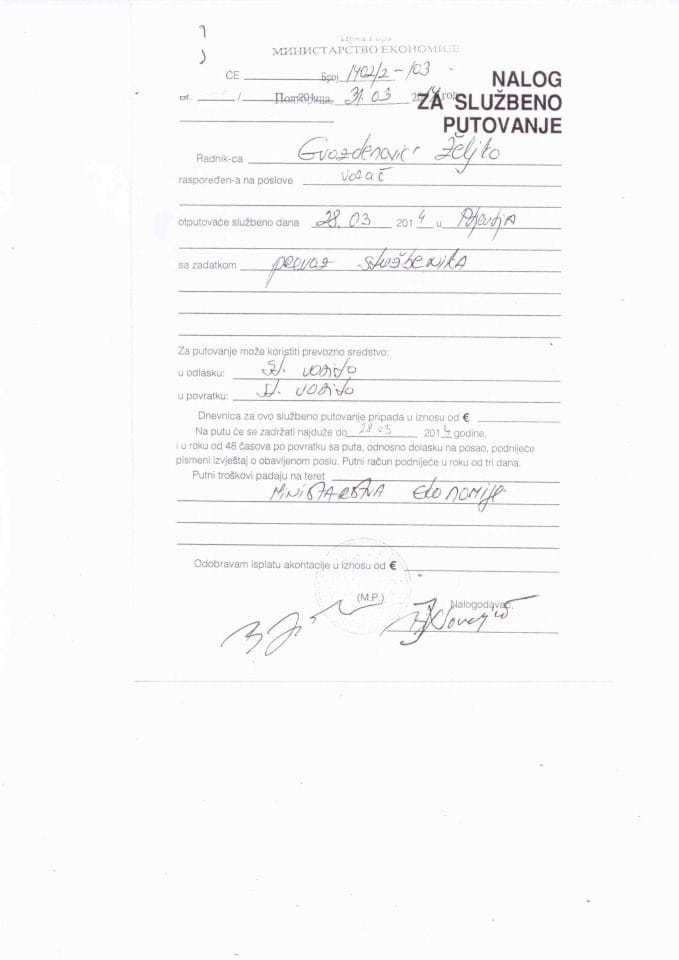 Црна Гора
МИНИСТАРСТВО ЕКОНОМИЈЕ
ĆE Број 1402/2-/03
Подгорица, 31.03 2014 год
NALOG
ZA SLUŽBENO
PUTOVANJE
Radnik-ca Gvozdenović Željko
raspoređen-a na poslove vozač
otputovaće službeno dana 28.03 2014 u
sa zadatkom prevoz službenika
Za putovanje može koristiti prevozno sredstvo:
u odlasku: sl. vozilo
u povratku: sl. vozilo
Dnevnica za ovo službeno putovanje pripada u iznosu od €
Na putu će se zadržati najduže do 28 03 2014 godine,
i u roku od 48 časova po povratku sa puta, odnosno dolasku na posao, podnijeće
pismeni izvještaj o obavljenom poslu. Putni račun podnijeće u roku od tri dana.
Putni troškovi padaju na teret
MINISTARSTVA EKONOMIJE
Odobravam isplatu akontacije u iznosu od €
(M.P.) Nalogodavac,